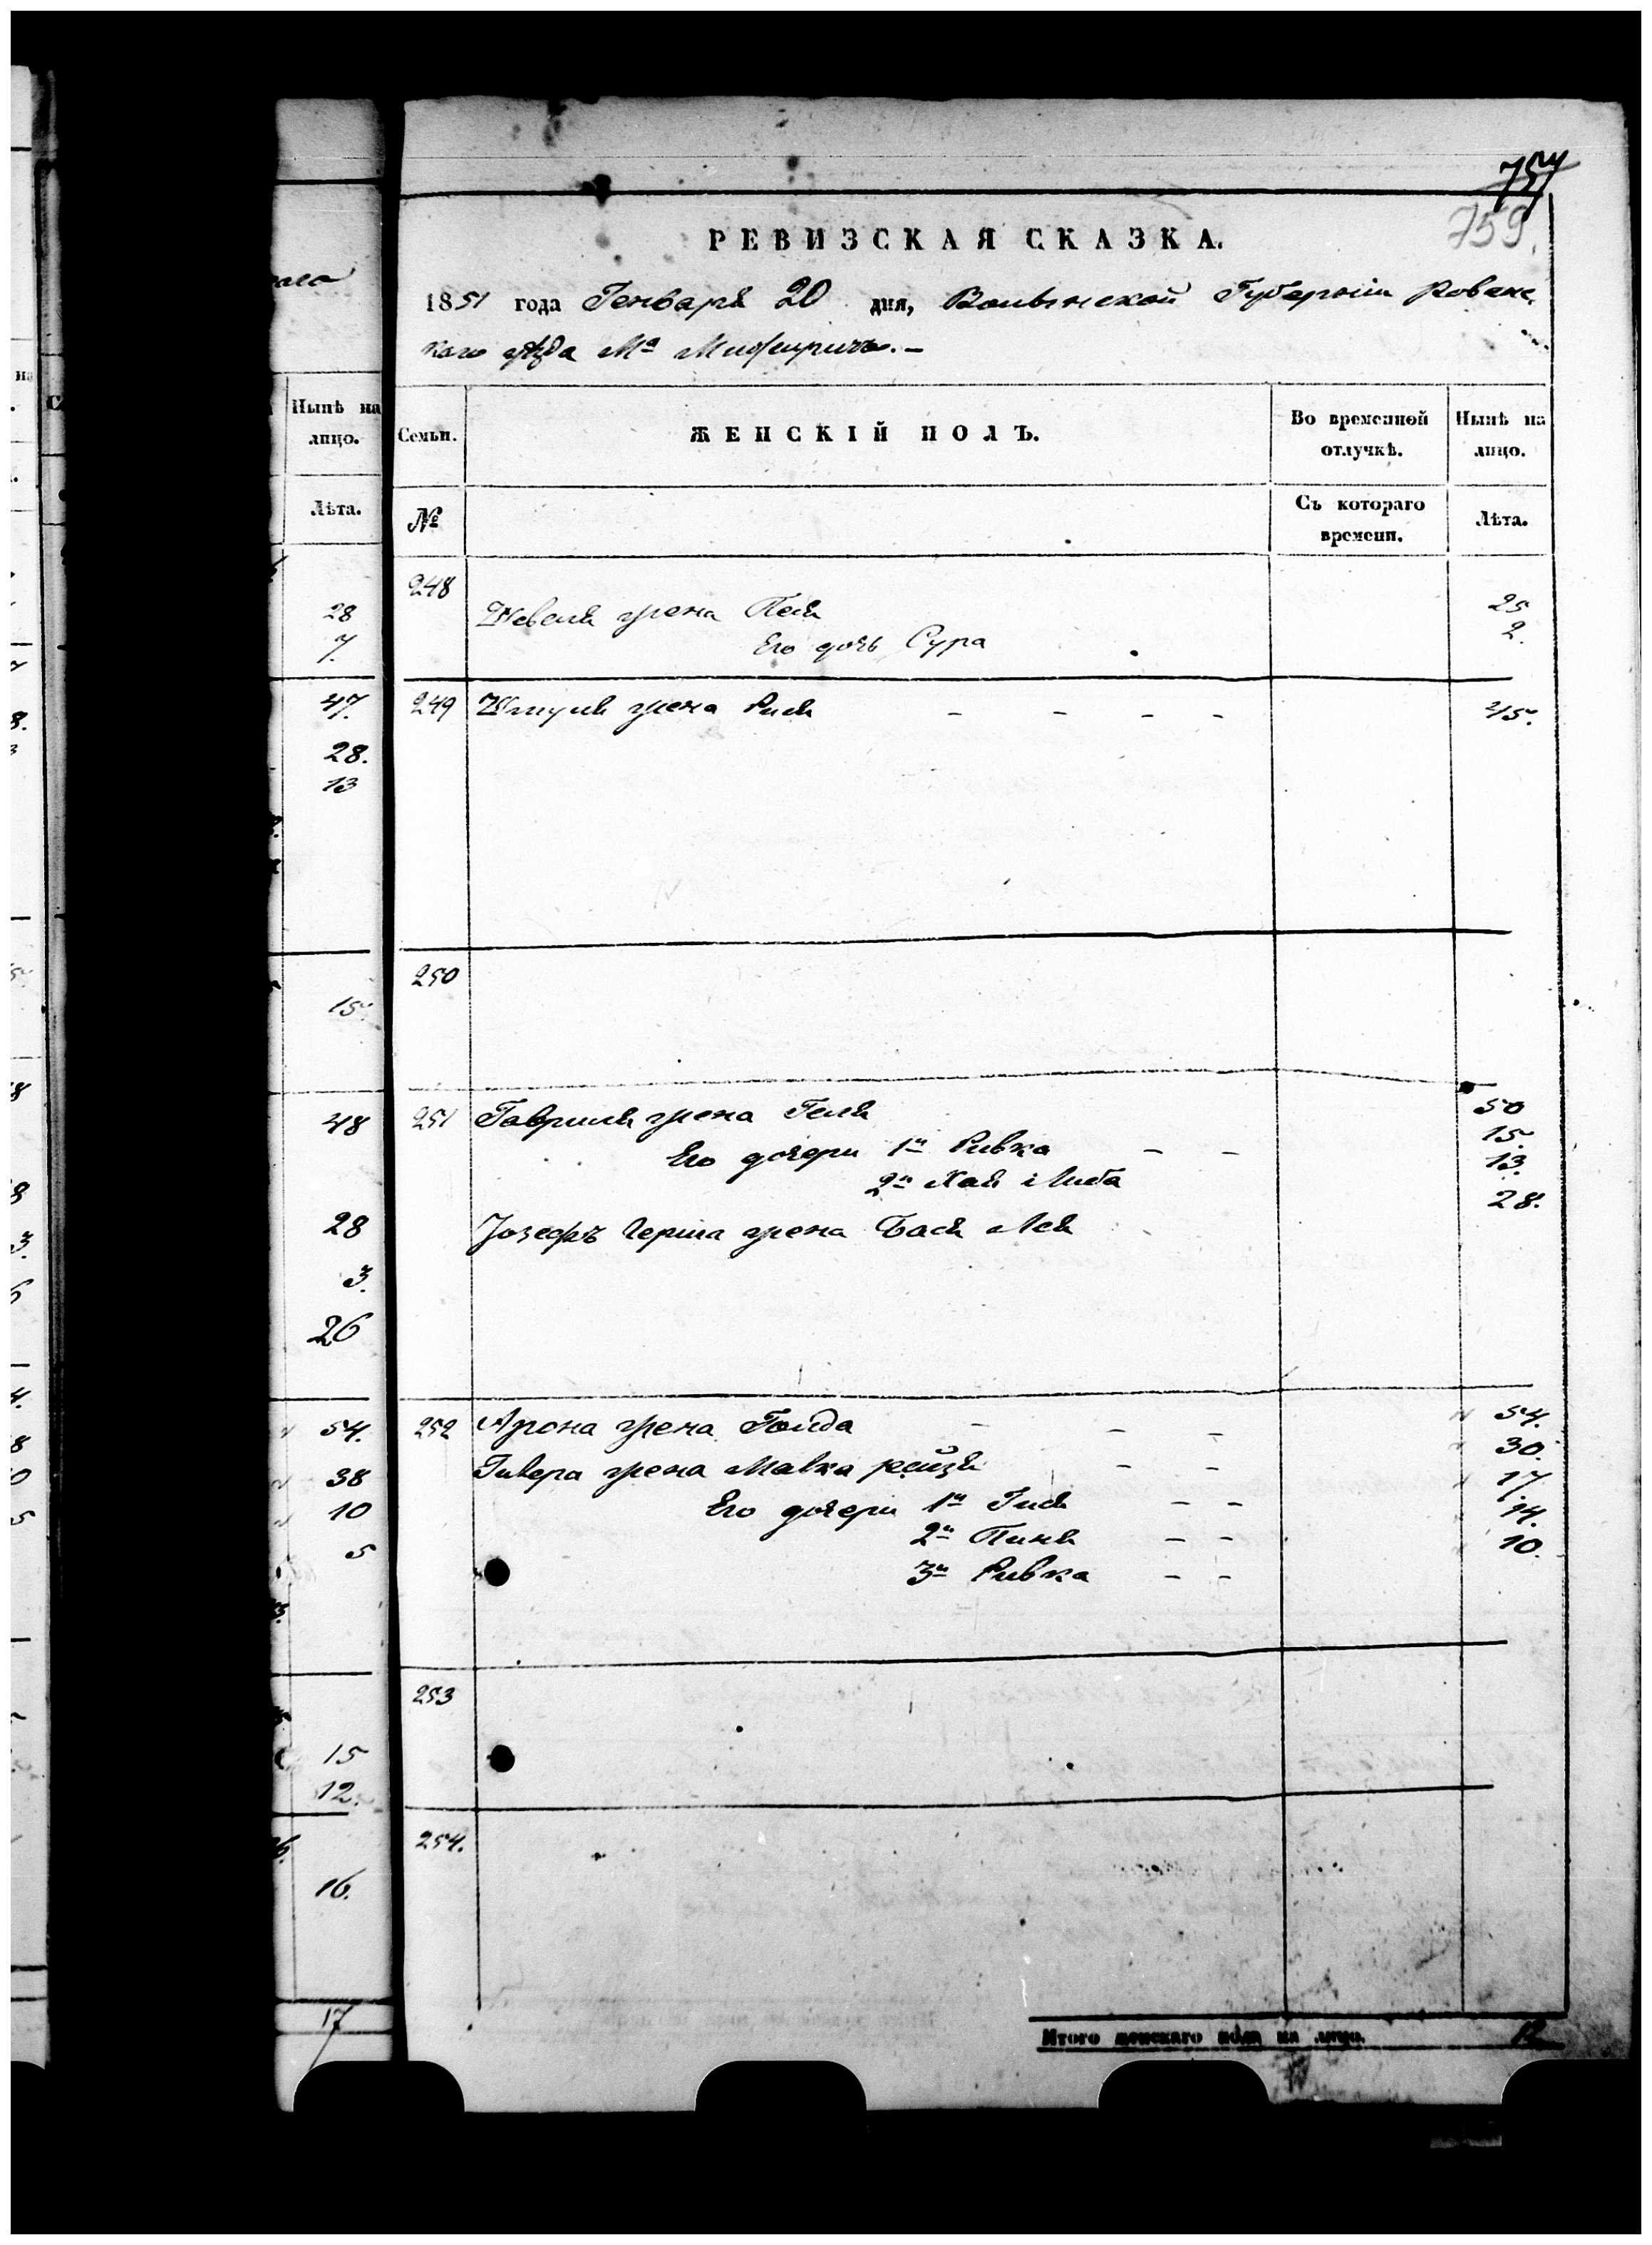 757
759.
РЕВИЗСКАЯ СКАЗКА.
1851 года Генваря 20 дня, Волынской Губернии Рованс.
каго уѣзда Мª Межирича.—
Нынѣ на лицо.
Семьи.
ЖЕНСКІЙ ПОЛЪ.
Во временной отлучкѣ.
Нынѣ на лицо.
Лѣта.
№
Съ котораго времени.
Лѣта.
248
28 жена Песя 25
7. Его дочь Сура 2.
47. 249 Шмуля жена Рися - - - - 45.
28.
13
250
15
48 251 Гаврила жена Геля 50
Его дочери 1я Ривка - - 15.
2я Хая Либа 13.
28 Іозефъ Герша жена Бася Лея 28.
3.
26
54. 252 Арона жена Голда - - - 54.
38 жена Малка рейзя - - 30.
10 Его дочери 1я Гися - - 17
5 2я - - 14.
3я Ривка - - 10.
253
15
12.
254.
16.
17
Итого женскаго пола на лицо. 12